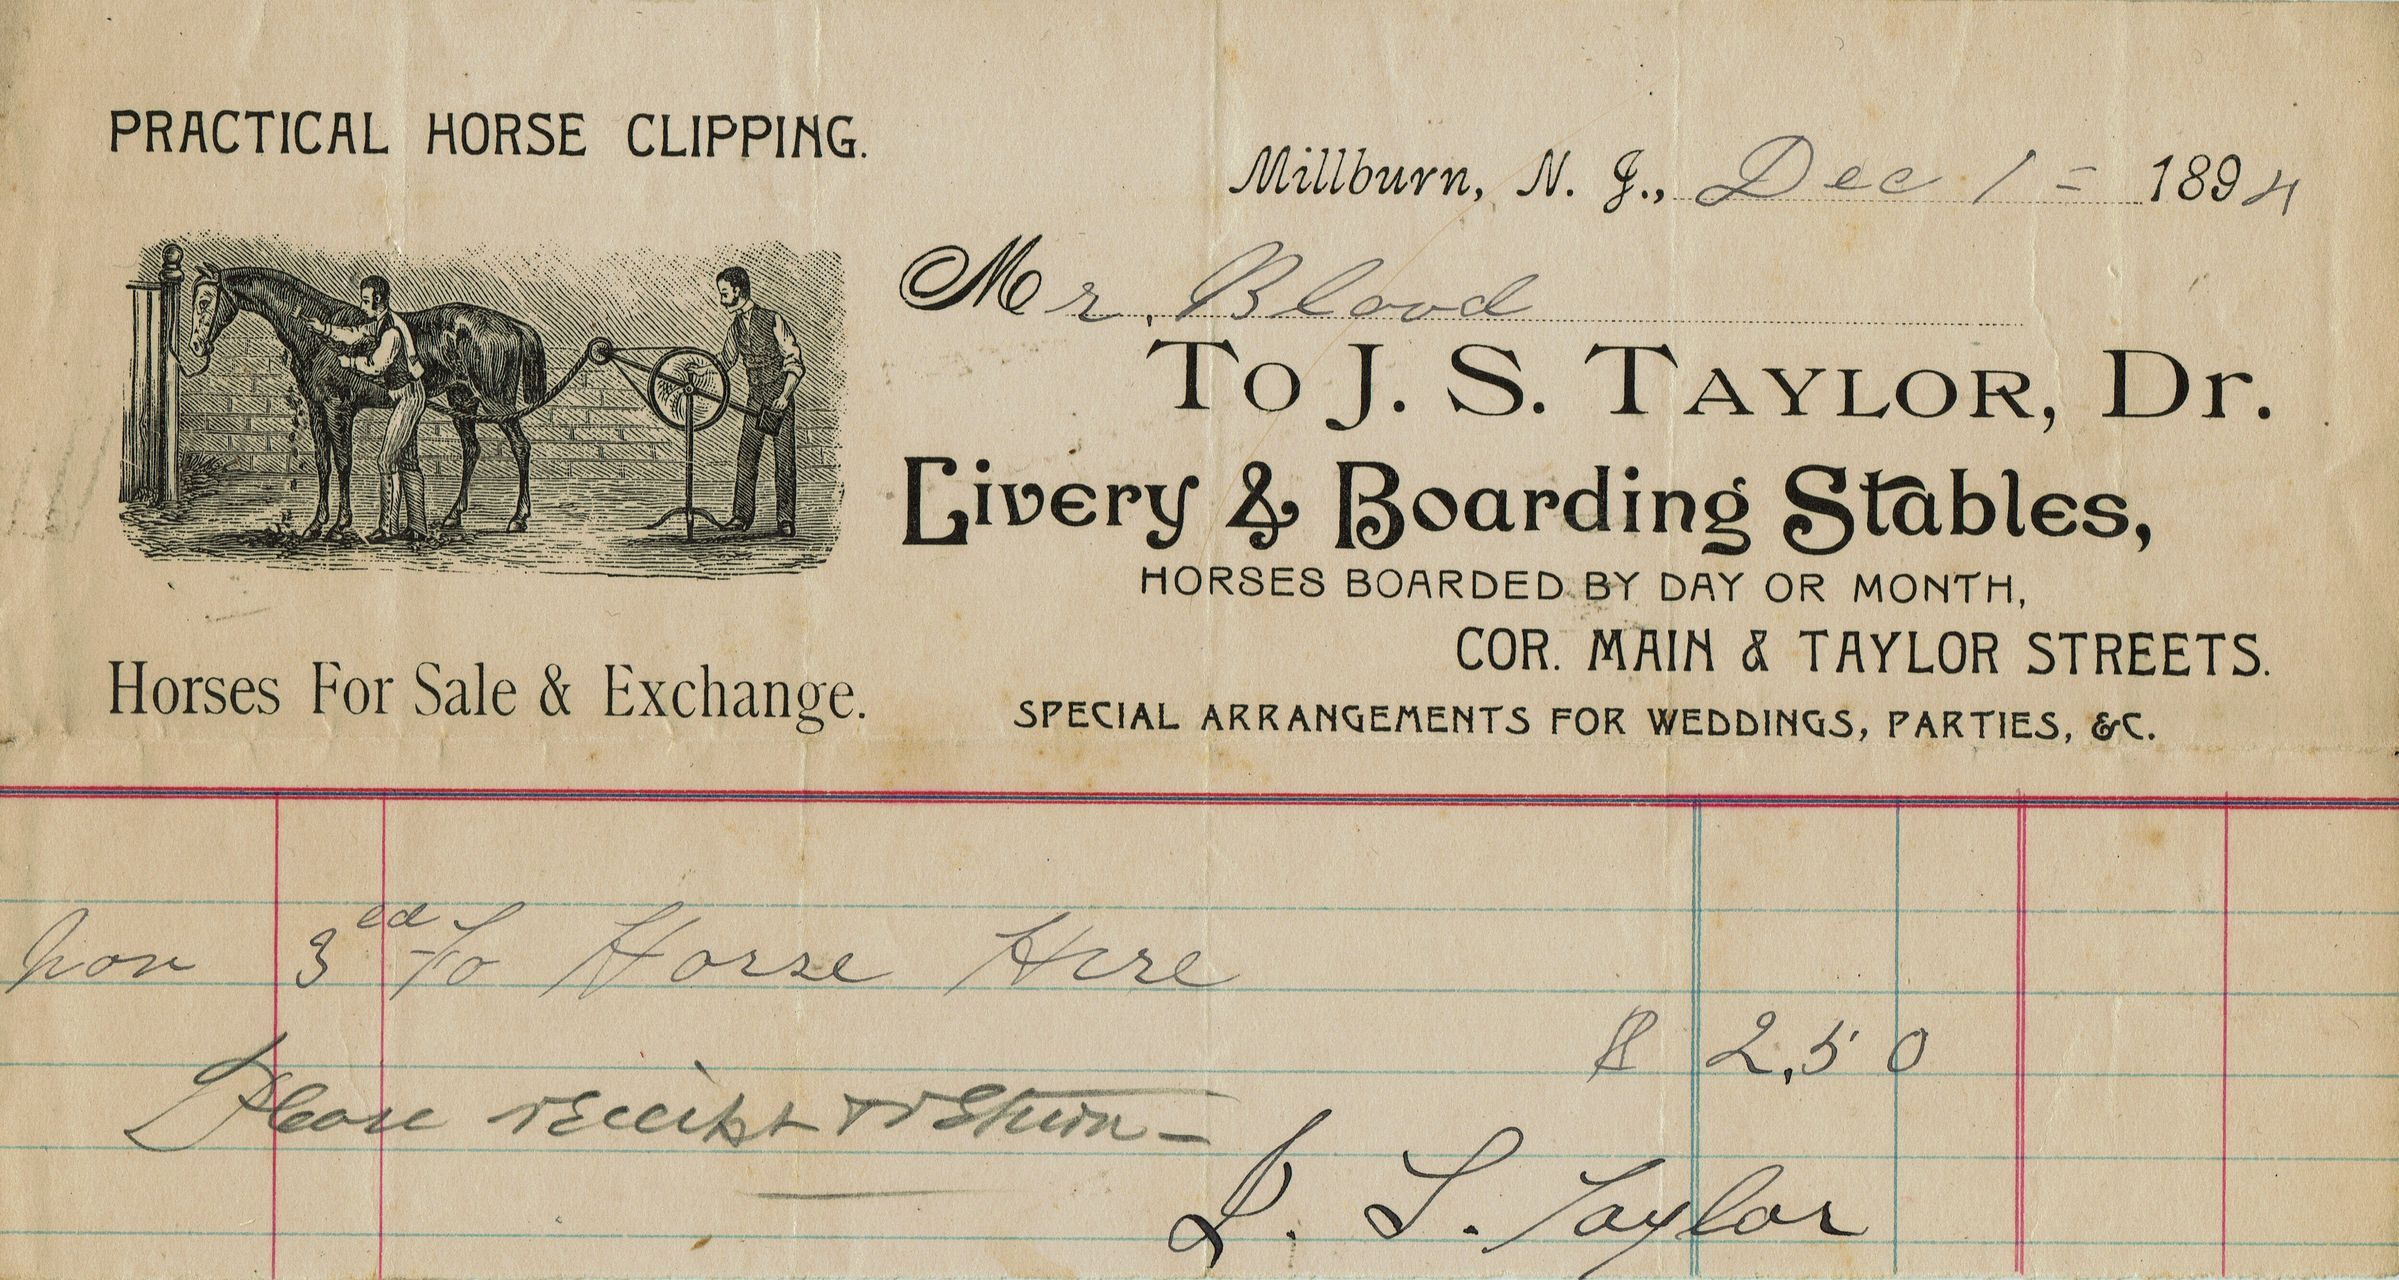 PRACTICAL HORSE CLIPPING.
Millburn, N. J., Dec 1 = 1894
Mr. Blood
To J. S. TAYLOR, Dr.
Livery & Boarding Stables,
HORSES BOARDED BY DAY OR MONTH,
COR. MAIN & TAYLOR STREETS.
Horses For Sale & Exchange.
SPECIAL ARRANGEMENTS FOR WEDDINGS, PARTIES, &C.
Nov 3ed To Horse Hire
$ 2.50
Please receipt & return —
J. S. Taylor